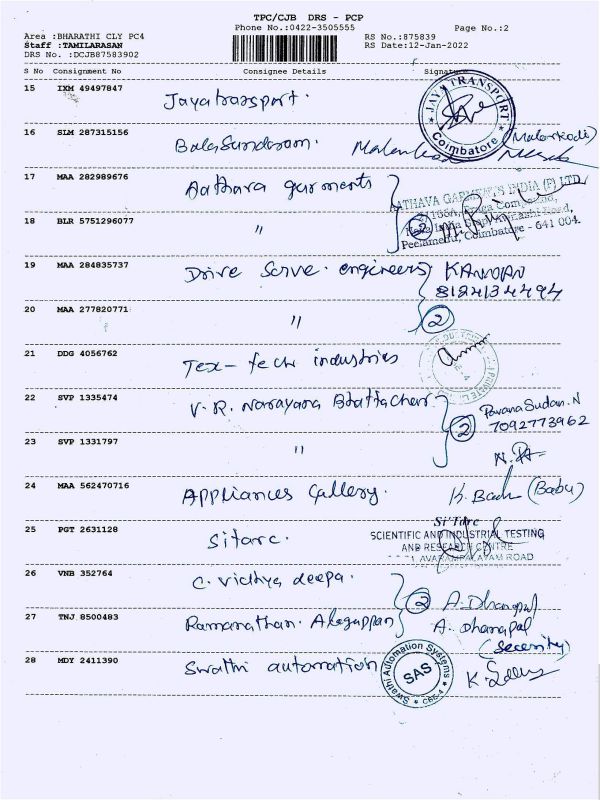 TPC/CJB DRS - PCP
Phone No.:0422-3505555
Page No.:2
Area :BHARATHI CLY PC4
RS No.:875839
Staff :TAMILARASAN
RS Date:12-Jan-2022
DRS No. :DCJB87583902
S No Consignment No Consignee Details Signature
15 IXM 49497847 Jayatransport.
JAYA TRANSPORT
Coimbatore
16 SLM 287315156 Balasundaram. (Malarkodi)
17 MAA 282989676 Aathava garments
ATHAVA GARMENTS INDIA (P) LTD
18 BLR 5751296077 " 2
Peelamedu, Coimbatore - 641 004.
19 MAA 284835737 Drive Serve. engineers KANNAN
8124134494
20 MAA 277820771 " 2
21 DDG 4056762 Tex-tech industries
22 SVP 1335474 V.R. Narayana Bhattachar. 2 Pavana Sudan.N
7092773962
23 SVP 1331797 "
24 MAA 562470716 Appliances Gallery. (Babu)
25 PGT 2631128 Sitarc.
Si'Tarc
SCIENTIFIC AND INDUSTRIAL TESTING
AND RESEARCH CENTRE
AVARAMPALAYAM ROAD
26 VNB 352764 C. Vidhya deepa. 2 A. Dhanapal
27 TNJ 8500483 Ramanathan. Alagappan A. Dhanapal
(Security)
28 MDY 2411390 Swathi automation
Swathi Automation Systems
SAS
CBE-4